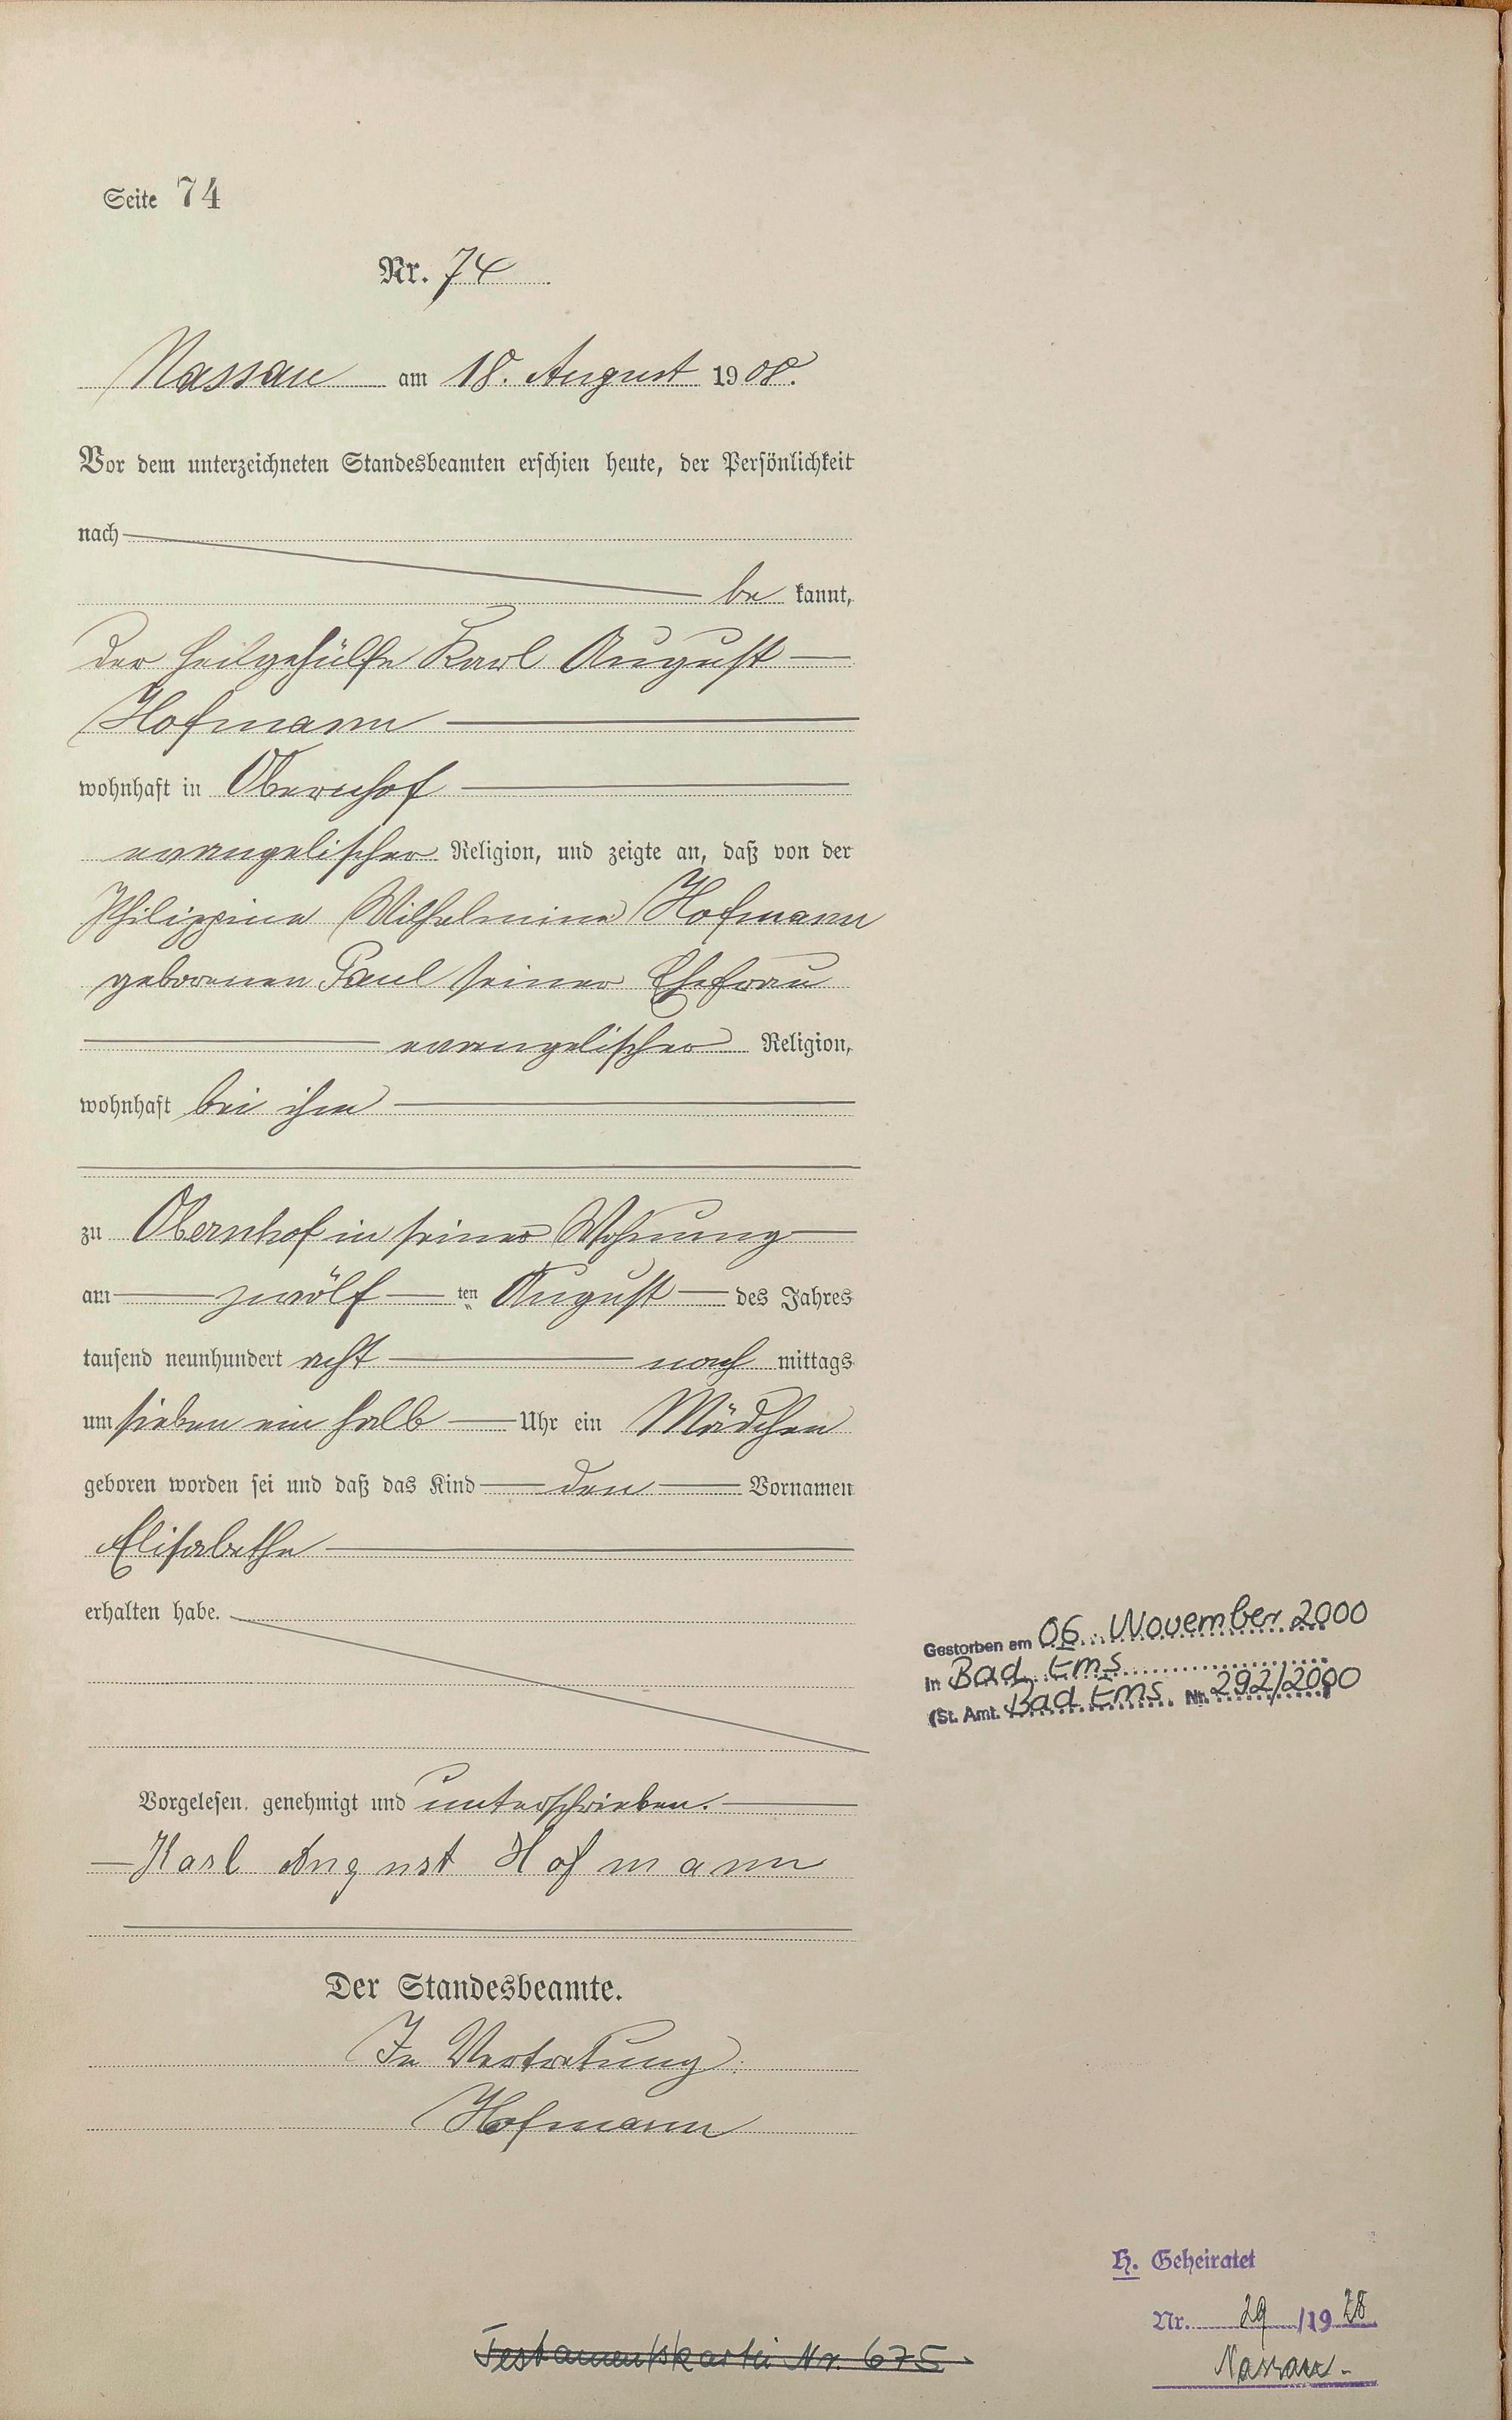 Seite 74
Nr. 74
Nassau am 18. August 1908.
Vor dem unterzeichneten Standesbeamten erschien heute, der Persönlichkeit
nach
be kannt,
der Heilgehülfe Karl August
Hofmann
wohnhaft in Obernhof
evangelischer Religion, und zeigte an, daß von der
Philippine Wilhelmine Hofmann
geborenen Paul seiner Ehefrau
evangelischer Religion,
wohnhaft bei ihm
zu Obernhof in seiner Wohnung
am zwölf ten August des Jahres
tausend neunhundert acht nach mittags
um sieben ein halb Uhr ein Mädchen
geboren worden sei und daß das Kind den Vornamen
Elisabethe
erhalten habe.
Gestorben am 06. November 2000
in Bad Ems
(St. Amt. Bad Ems Nr. 292/2000)
Vorgelesen, genehmigt und unterschrieben.
Karl August Hofmann
Der Standesbeamte.
In Vertretung.
Hofmann
H. Geheiratet
Nr. 29 /1928
Nassau.
Testamentskartei Nr. 675